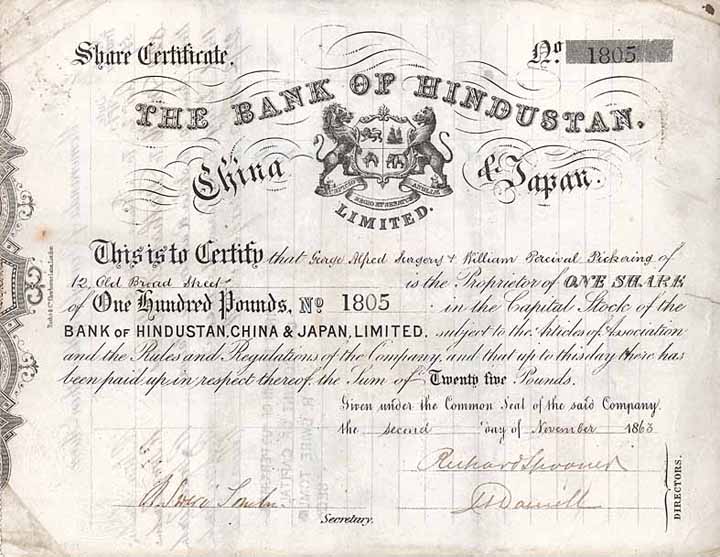 Share Certificate.
No. 1805
THE BANK OF HINDUSTAN.
China & Japan.
LIMITED.
This is to Certify that George Alfred & William Percival Pickering of
12, Old Broad Street is the Proprietor of ONE SHARE
of One Hundred Pounds, No 1805 in the Capital Stock of the
BANK OF HINDUSTAN, CHINA & JAPAN, LIMITED. subject to the Articles of Association
and the Rules and Regulations of the Company, and that up to this day there has
been paid up in respect thereof, the Sum of Twenty five Pounds.
Given under the Common Seal of the said Company.
the second day of November 1863
Richard Spooner
Secretary.
DIRECTORS.